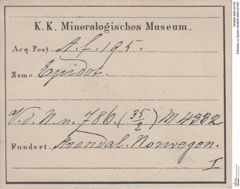 K. K. Mineralogisches Museum.
Acq. Post A.f. 195.
Name Epidot.
V. d. N. n. 786. (35/2) M
Fundort. Arendal. Norwegen.
I